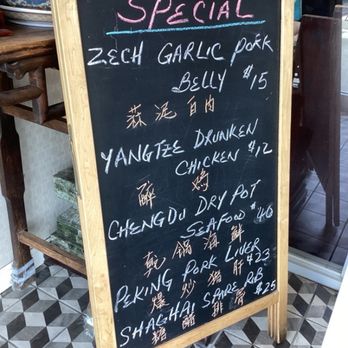 SPECIAL
ZECH GARLIC PORK
BELLY $15
蒜泥白肉
YANGTZE DRUNKEN
CHICKEN $12
醉鸡
CHENGDU DRY POT
SEAFOOD $40
乾鍋海鮮
PEKING PORK LIVER
$23
爆炒猪肝
SHAGHAI SPARE RIB
$25
糖醋排骨